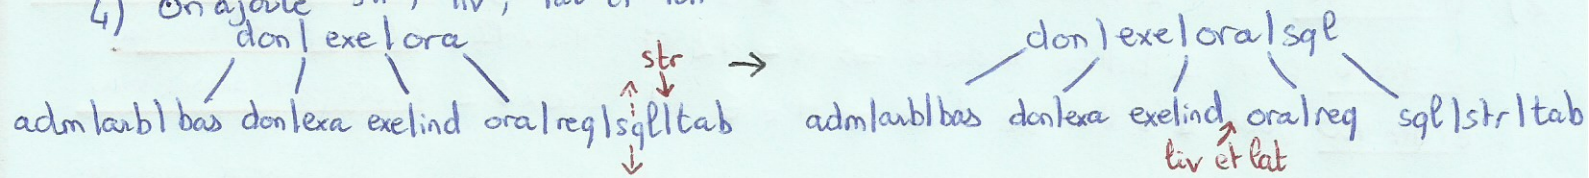 4) On ajoute str, liv, lat et
don | exe | ora
str
→
don | exe | ora | sql
adm | arb | bas don | exa exe | ind ora | req | sql | tab
adm | arb | bas don | exa exe | ind ora | req sql | str | tab
liv et lat